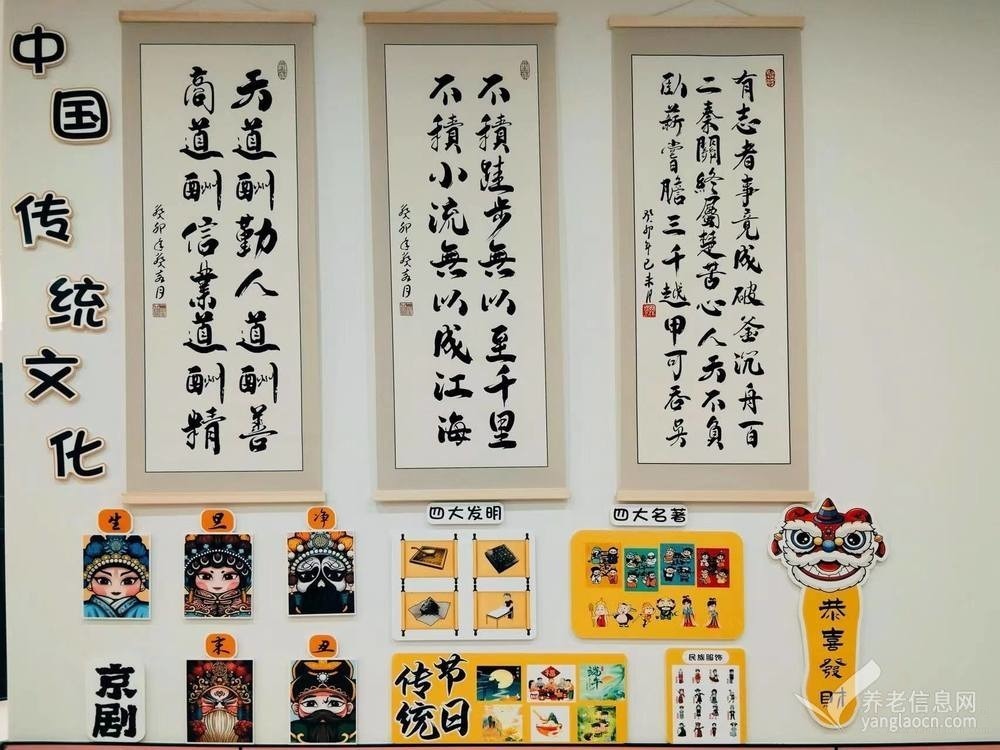 中国传统文化
天道酬勤人道酬善
商道酬信業道酬精
癸卯年癸亥月
不積跬步無以至千里
不積小流無以成江海
癸卯年癸亥月
有志者事竟成破釜沉舟百
二秦關終屬楚苦心人天不負
臥薪嘗膽三千越甲可吞吳
癸卯年己未月
生
旦
净
末
丑
京剧
四大发明
四大名著
传统
节日
端午
民族服饰
恭喜發財
养老信息网
yanglaocn.com